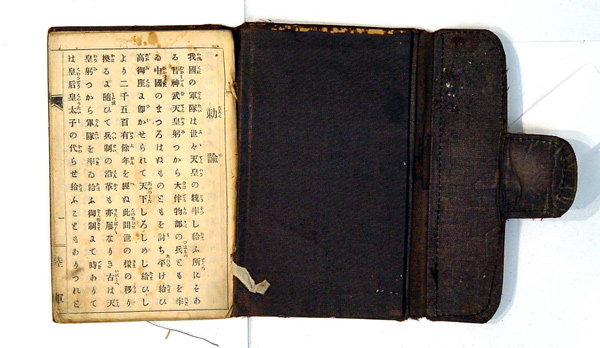 勅諭
我國の軍隊は世々天皇の統率し給ふ所にそあ
る昔神武天皇躬つから大伴物部の兵ともを率
ゐ中國のまつろはぬものともを討ち平け給ひ
高御座に即かせられて天下しろしめし給ひし
より二千五百有餘年を經ぬ此間世の樣の移り
換るに隨ひて兵制の沿革も亦屢なりき古は天
皇躬つから軍隊を率ゐ給ふ御制にて時ありて
は皇后皇太子の代らせ給ふこともありつれと
一
陸軍